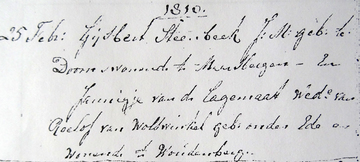 1810.
25 Feb: Gijsbert Steenbeek J: M: geb: te
Doorn wonende te Maarsbergen – En
Jannigje van de Lagemaat wede. van
Roelof van Wolswinkel geb: onder Ede en
wonend te Woudenberg.